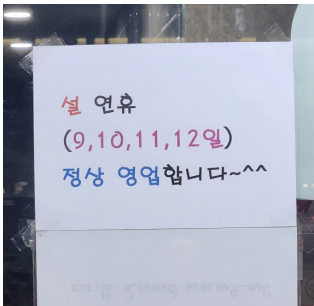 설 연휴
(9,10,11,12일)
정상 영업합니다~^^